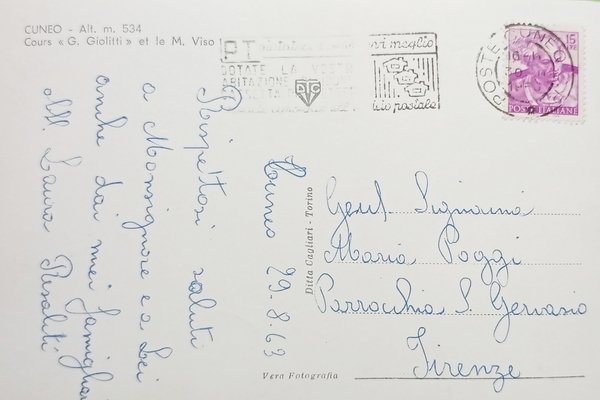 CUNEO - Alt. m. 534
Cours « G. Giolitti » et le M. Viso
PT
DOTATE LA VOSTRA
ABITAZIONE
DTC
meglio
postale
POSTE CUNEO
15
LIRE
POSTE ITALIANE
Cuneo 29.8.63
Rispettosi saluti
a Monsignore e a Lei
anche dai miei famigliari
M. Laura Risoliti
Ditta Cagliari - Torino
Vera Fotografia
Gent. Signorina
Maria Poggi
Parrocchia S. Gervasio
Firenze